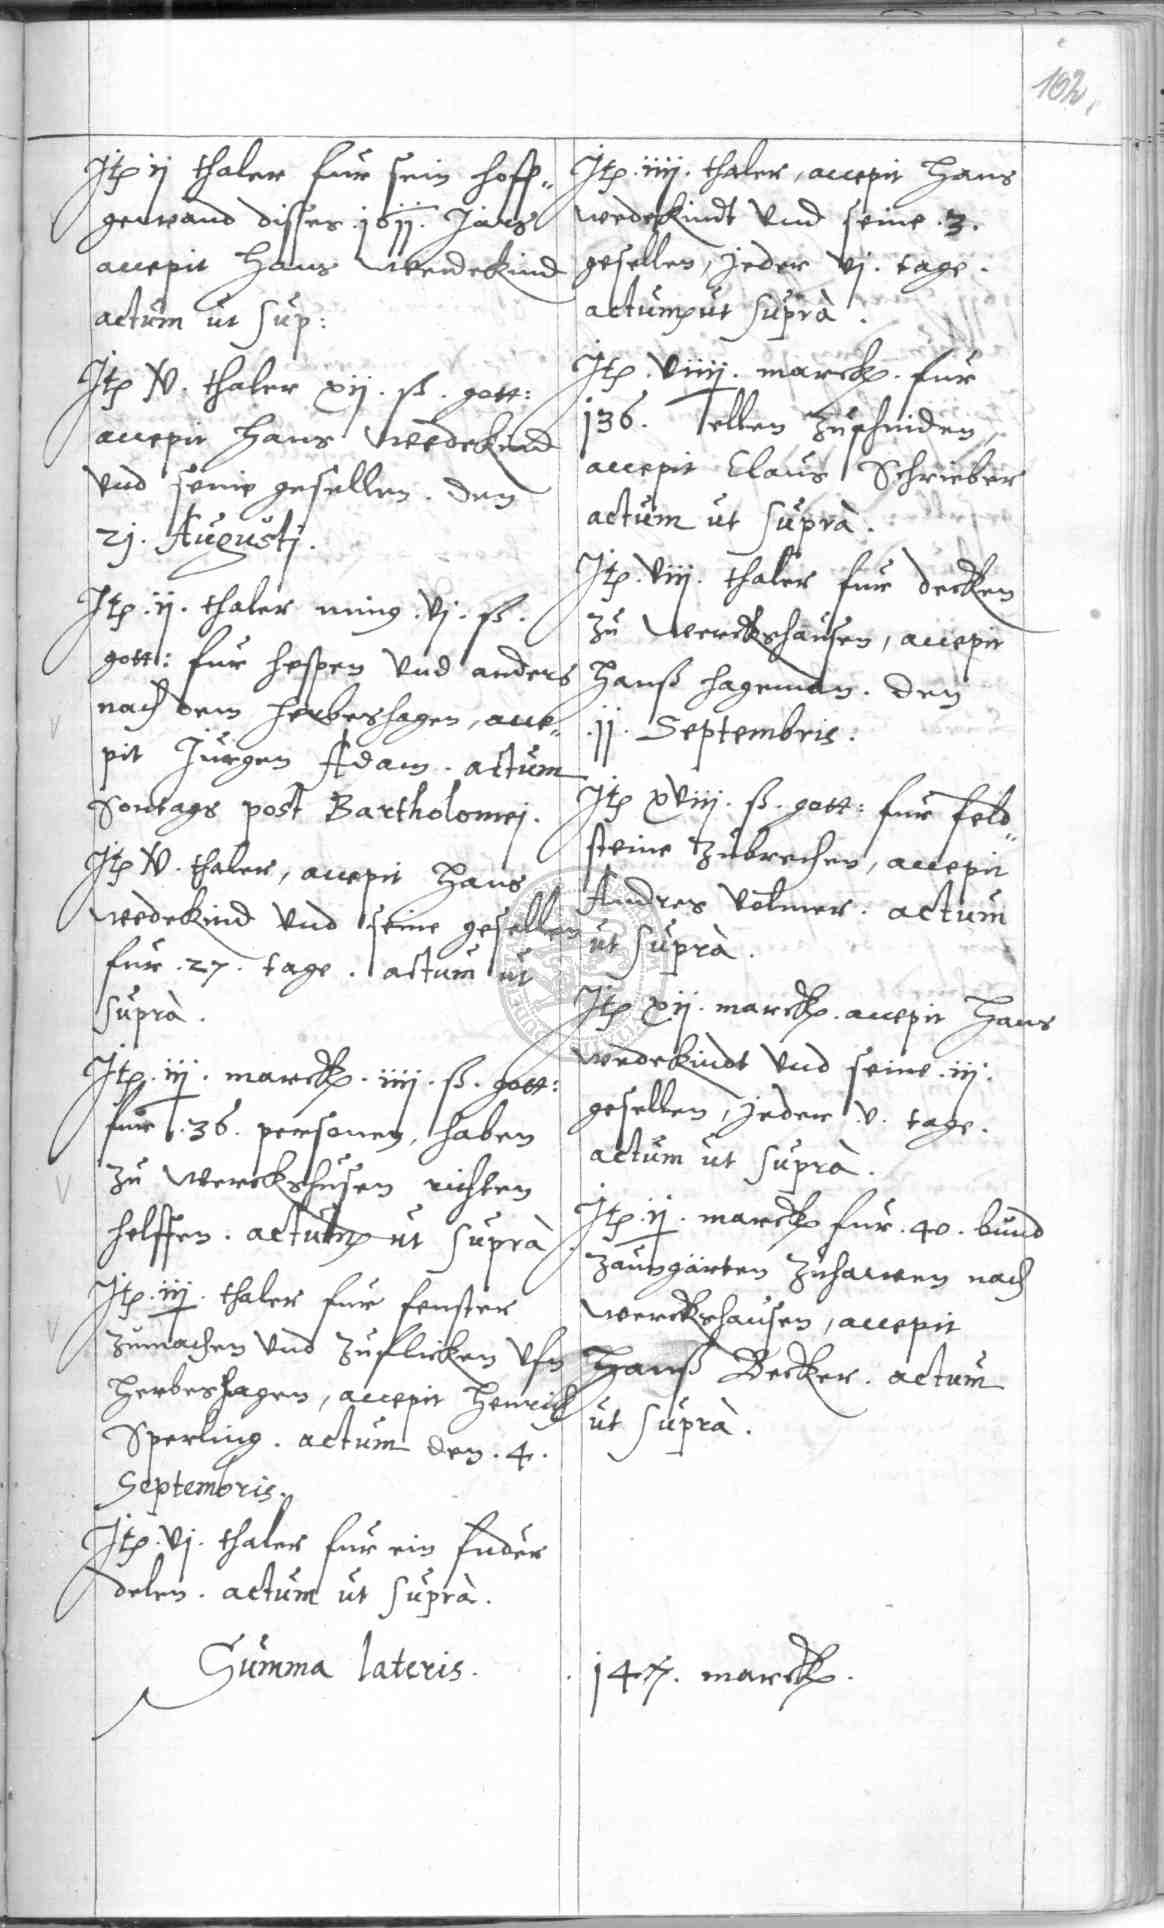 102.
Itp ij thaler fur sein hoff„
gewand disses 1611. Jars
accepit Hans Wedekind
actum ut sup:
Itp V. thaler xij. ß. gott:
accepit Hans Wedekind
Vnd seine gesellen. den
21. Augusti.
Itp .ij. thaler ming .vj. ß.
gott: fur hespen Vnd anders
nach dem Herbeshagen, acce„
pit Jurgen Adam. actum
Sontags post Bartholomej.
Itp V. thaler, accepit Hans
wedekind Vnd seine gesellen
fur .27. tage. actum ut
suprà.
Itp .iij. marck. iiij. ß. gott:
fur .36. personen, haben
zu Werckshusen richten
helffen. actum ut suprà
Itp .iij. thaler fur fenster
zumachen Vnd zuflicken Vfn
Herbeshagen, accepit Henrich
Sperling. actum den .4.
Septembris.
Itp .vj. thaler fur ein fuder
delen. actum ut suprà.
Summa lateris.
Itp .iiij. thaler, accepit Hans
wedekindt Vnd seine .3.
gesellen, jeder vj. tage.
actum ut suprà.
Itp .viiij. marck. fur
136. ellen zuschniden,
accepit Claus Schrieber
actum ut suprà.
Itp .viij. thaler fur decken
zu Werckshausen, accepit
Hanß Hageman. den
.11. Septembris.
Itp xviij. ß. gott: fur feld„
steine zubrechen, accepit
Andres Volmer. actum
ut suprà.
Itp xij. marck. accepit Hans
wedekindt Vnd seine .iij.
gesellen, jeder .v. tage.
actum ut suprà.
Itp .ij. marck fur .40. bund
zaungärten zuhawen nach
Werckshausen, accepit
Hanß Becker. actum
ut suprà.
147. marck.